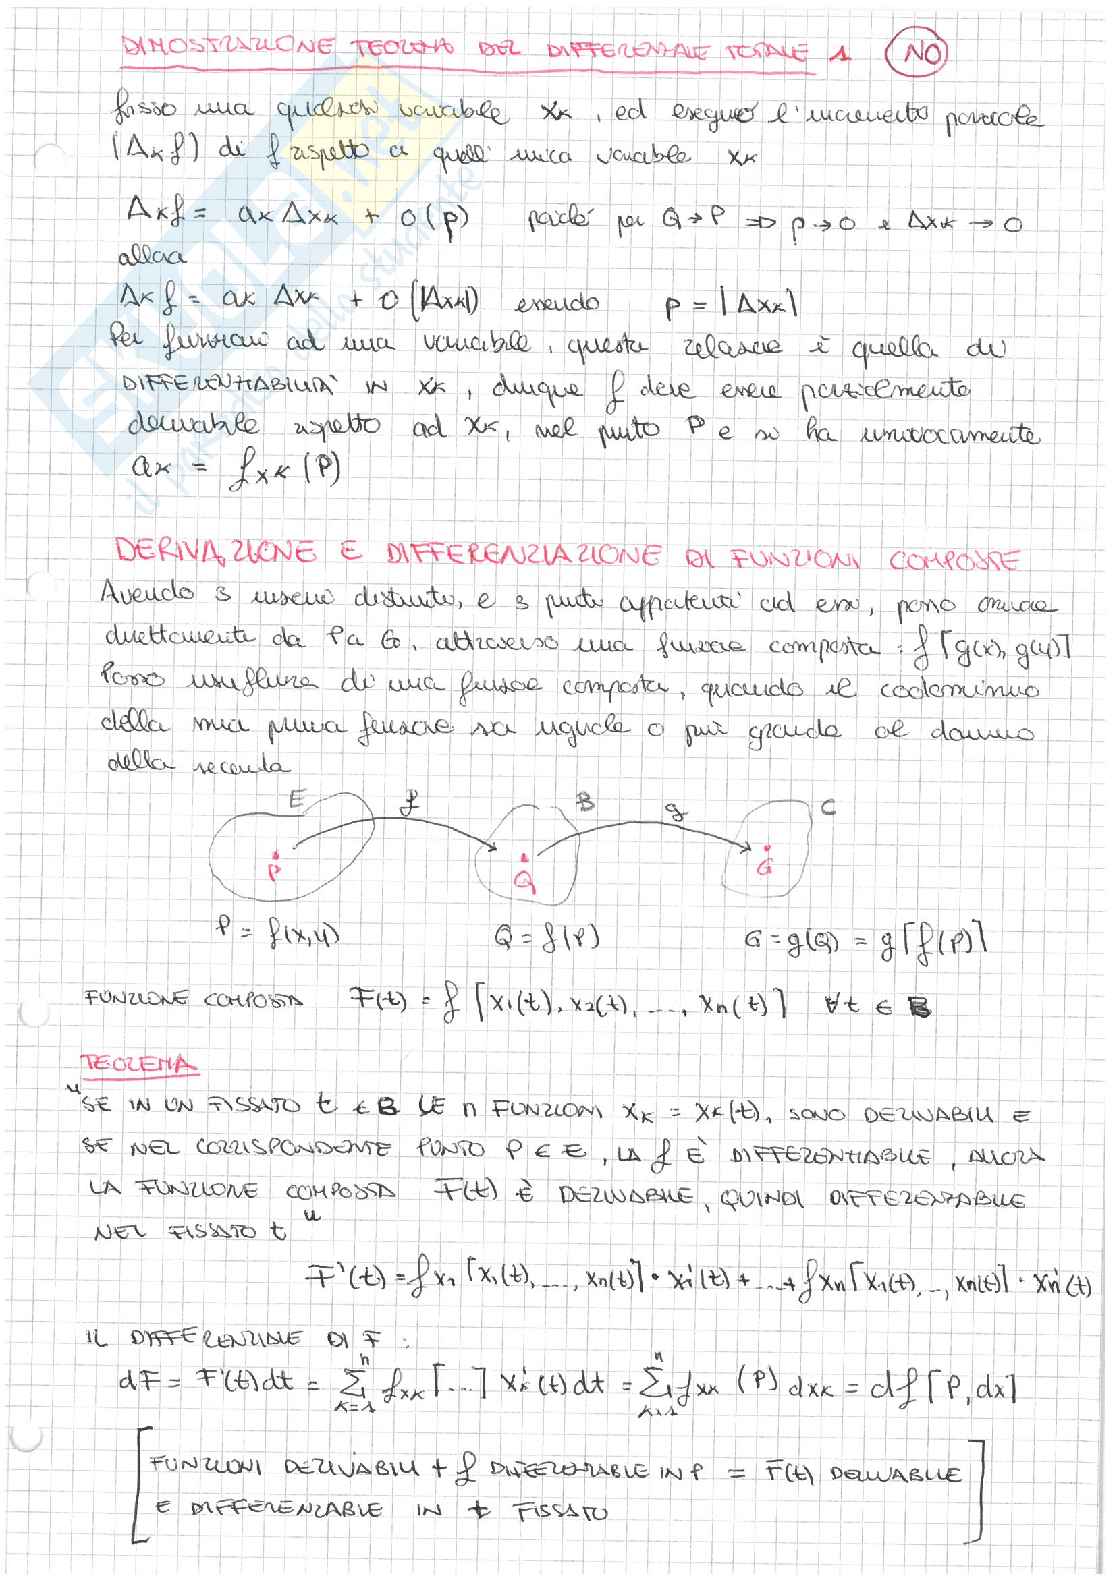 DIMOSTRAZIONE TEOREMA DEL DIFFERENZIALE TOTALE 1 NO
fisso una qualsiasi variabile xₖ, ed eseguo l'incremento parziale
(Δₖf) di f rispetto a quell'unica variabile xₖ
Δₖf = aₖ Δxₖ + o(ρ) poiché per Q→P ⇒ ρ→0 e Δxₖ → 0
allora
Δₖf = aₖ Δxₖ + o(|Δxₖ|) essendo ρ = |Δxₖ|
Per funzioni ad una variabile, questa relazione è quella di
DIFFERENZIABILITÀ IN xₖ, dunque f deve essere parzialmente
derivabile rispetto ad xₖ, nel punto P e si ha univocamente
aₖ = fxₖ (P)
DERIVAZIONE E DIFFERENZIAZIONE DI FUNZIONI COMPOSTE
Avendo 3 insiemi distinti, e 3 punti appartenenti ad essi, posso
direttamente da P a G, attraverso una funzione composta: f[g(x), g(y)]
Posso usufruire di una funzione composta, quando il codominio
della mia prima funzione sia uguale o più grande al dominio
della seconda
E f B g C
P Q G
P = f(x,y) Q = f(P) G = g(Q) = g[f(P)]
FUNZIONE COMPOSTA F(t) = f [x₁(t), x₂(t), ...., xₙ(t)] ∀t ∈ B
TEOREMA
"SE IN UN FISSATO t ∈ B LE n FUNZIONI xₖ = xₖ(t), SONO DERIVABILI E
SE NEL CORRISPONDENTE PUNTO P ∈ E, LA f È DIFFERENZIABILE, ALLORA
LA FUNZIONE COMPOSTA F(t) È DERIVABILE, QUINDI DIFFERENZIABILE
NEL FISSATO t"
F'(t) = fx₁[x₁(t), ...., xₙ(t)] · x₁'(t) + ... + fxₙ[x₁(t), .., xₙ(t)] · xₙ'(t)
IL DIFFERENZIALE DI F :
dF = F'(t)dt = Σₖ₌₁ⁿ fxₖ[...] xₖ'(t)dt = Σₖ₌₁ⁿ fxₖ (P) dxₖ = df[P, dx]
[FUNZIONI DERIVABILI + f DIFFERENZIABILE IN P = F(t) DERIVABILE
E DIFFERENZIABLE IN t FISSATO]